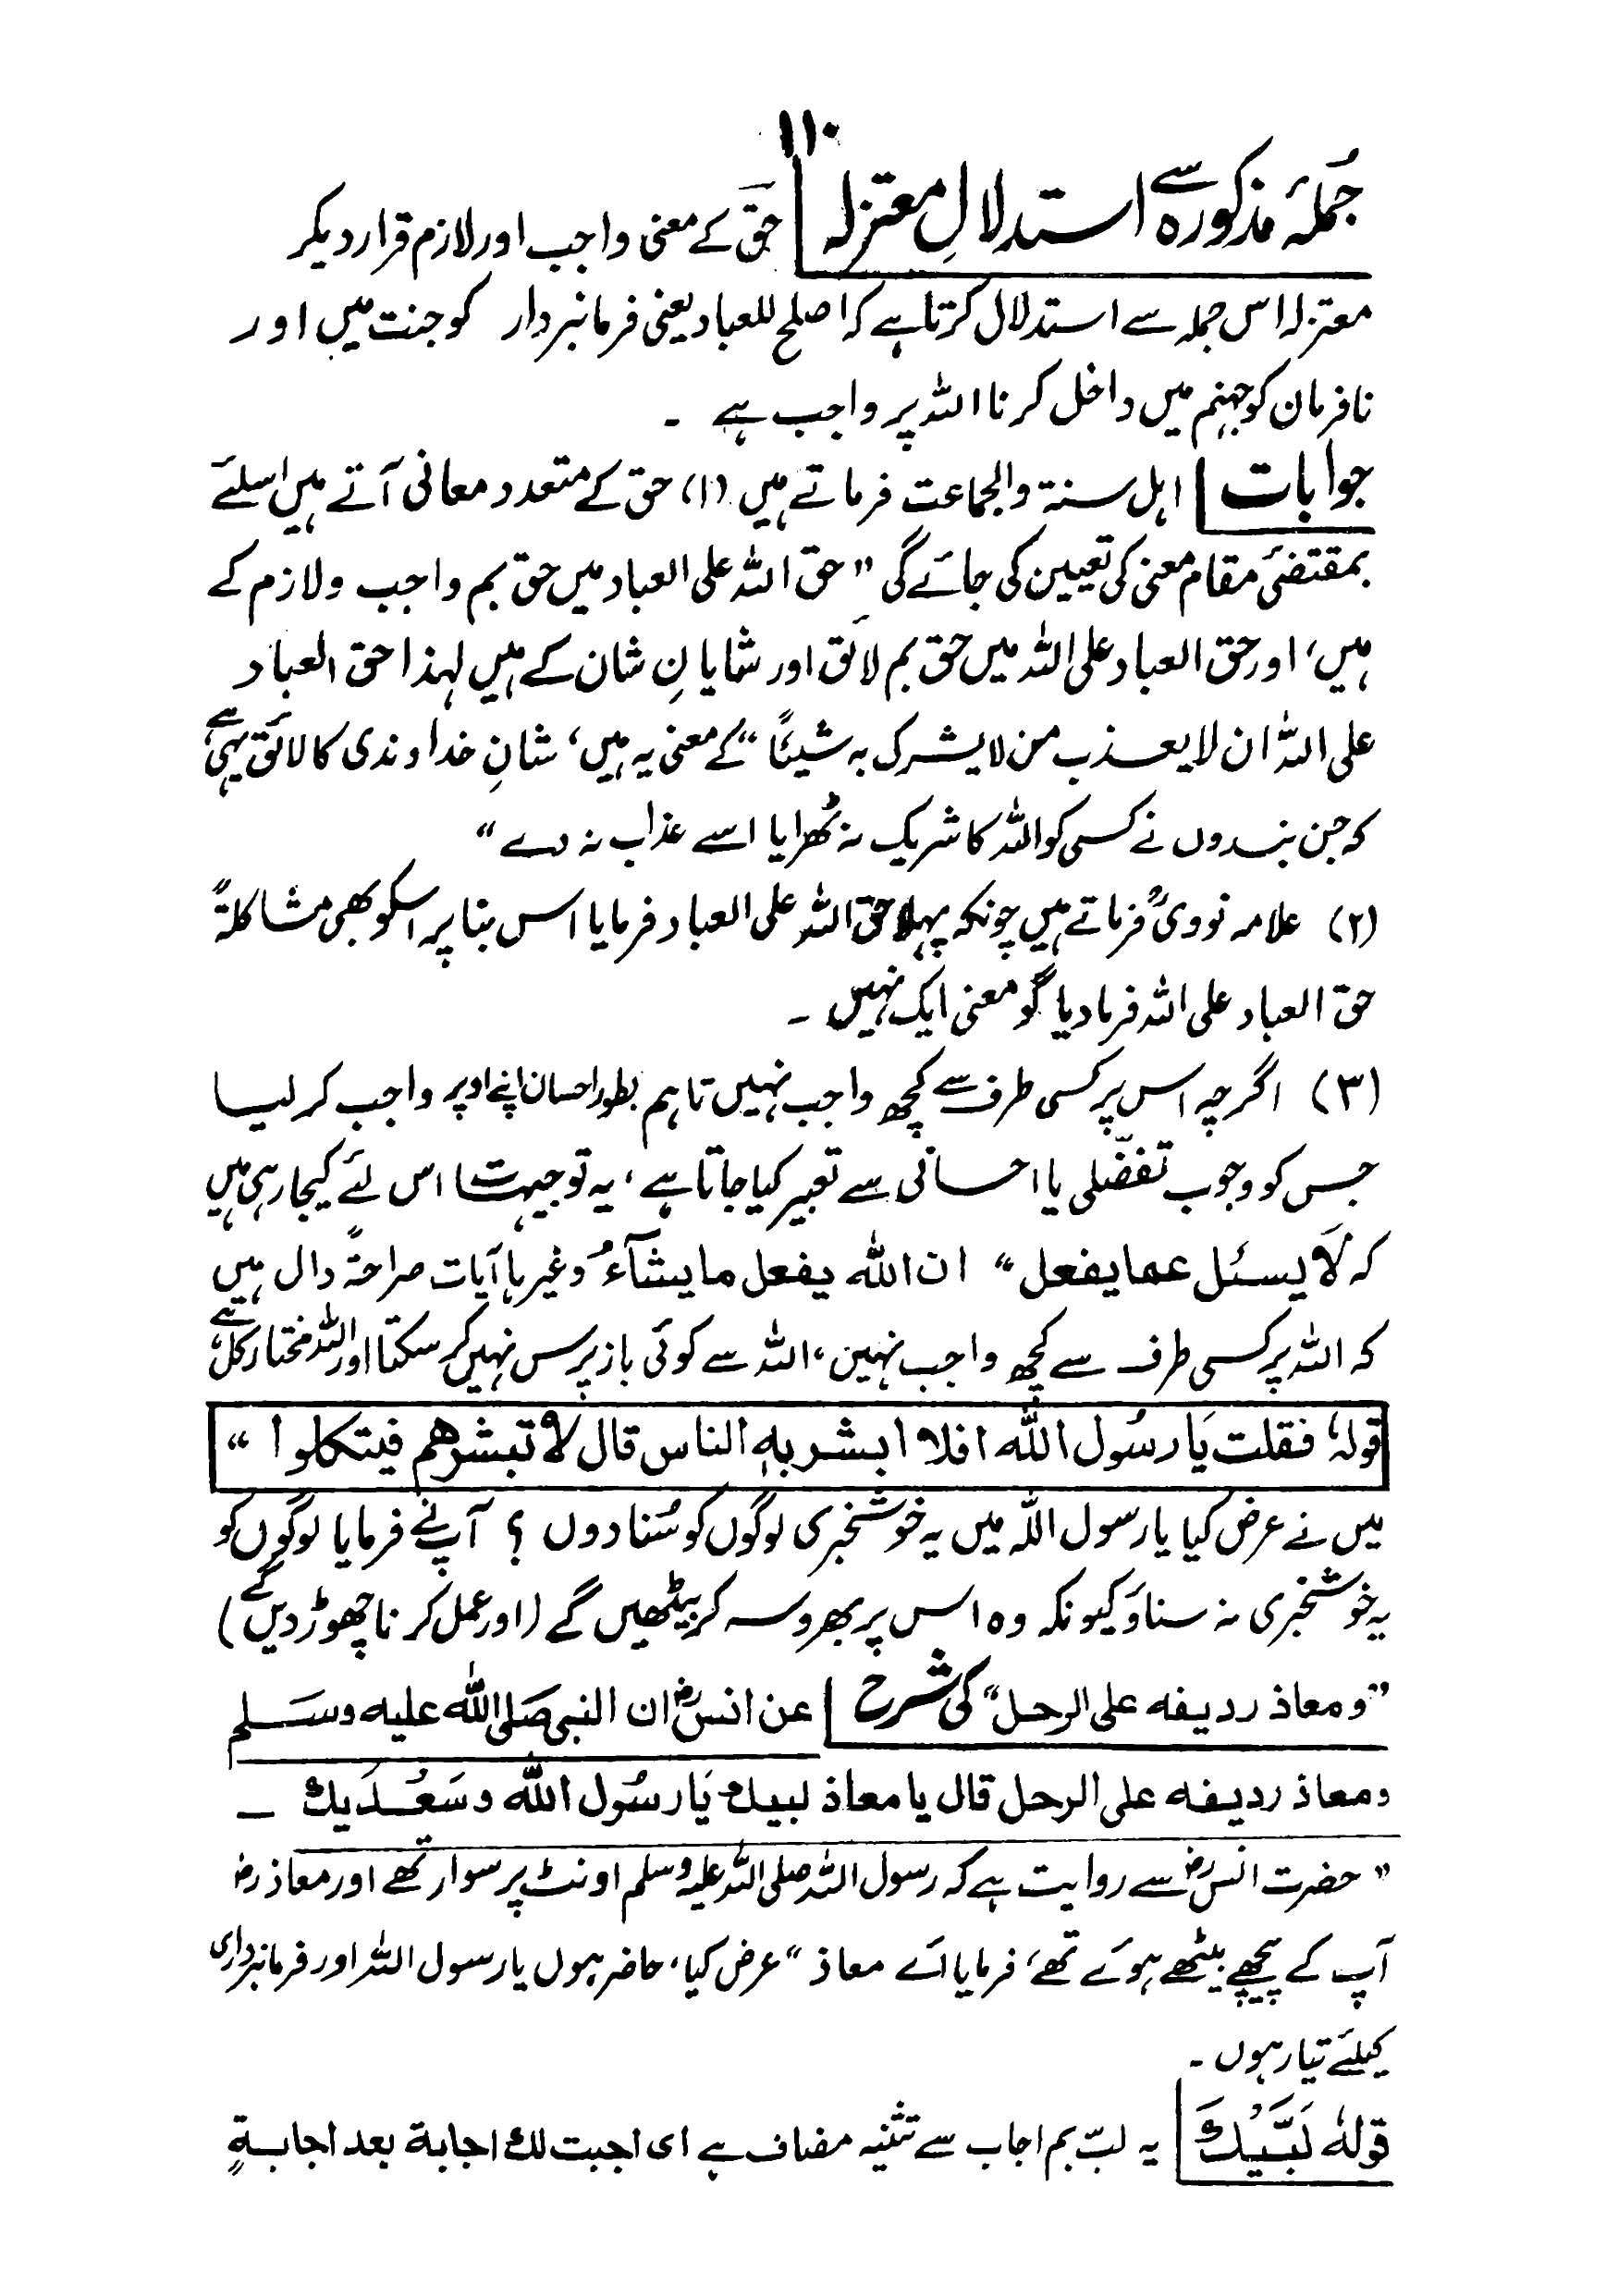 ۱۱۰
جملۂ مذکورہ سے استدلالِ معتزلہ حق کے معنی واجب اور لازم قرار دیکر
معتزلہ اس جملہ سے استدلال کرتا ہے کہ اصلح للعباد یعنی فرمانبردار کو جنت میں اور
نافرمان کو جہنم میں داخل کرنا اللہ پر واجب ہے ۔
جوابات اہل سنۃ والجماعت فرماتے ہیں (۱) حق کے متعدد معانی آتے ہیں اسلئے
بمقتضئ مقام معنی کی تعیین کی جائے گی ” حق اللہ علی العباد میں حق بم واجب ولازم کے
ہیں، اور حق العباد علی اللہ میں حق بم لائق اور شایانِ شان کے ہیں لہذا حق العباد
علی اللہ ان لا یعذب من لا یشرک بہ شیئاً “ کے معنی یہ ہیں، شانِ خداوندی کا لائق یہی ہے
کہ جن بندوں نے کسی کو اللہ کا شریک نہ ٹھرایا اسے عذاب نہ دے “
(۲) علامہ نوویؒ فرماتے ہیں چونکہ پہلا حق اللہ علی العباد فرمایا اس بنا پر اسکو بھی مشاکلۃً
حق العباد علی اللہ فرمادیا گو معنی ایک نہیں ۔
(۳) اگرچہ اس پر کسی طرف سے کچھ واجب نہیں تاہم بطور احسان اپنے اوپر واجب کر لیا
جس کو وجوب تفضّلی یا احسانی سے تعبیر کیا جاتا ہے، یہ توجیہات اس لئے کیجا رہی ہیں
کہ لَا یسئل عما یفعل “ ان اللہ یفعل ما یشآءُ وغیرہا آیات صراحۃً دال ہیں
کہ اللہ پر کسی طرف سے کچھ واجب نہیں، اللہ سے کوئی باز پرس نہیں کر سکتا اور اللہ مختار کل ہے
قولہٗ فقلت یَا رسُول اللہ افلا ابشر بہٖ الناس قال لا تبشرھم فیتکلوا “
میں نے عرض کیا یا رسول اللہ میں یہ خوشخبری لوگوں کو سُنا دوں ؟ آپنے فرمایا لوگوں کو
یہ خوشخبری نہ سناؤ کیونکہ وہ اس پر بھروسہ کر بیٹھیں گے (اور عمل کرنا چھوڑ دیں گے)
”ومعاذ ردیفہ علی الرحل“ کی شرح عن انسؓ ان النبی صَلی اللہ علیہ وسَلم
ومعاذ ردیفہ علی الرحل قال یا معاذ لبیك یَا رسُول اللہ وسَعُدَیك ــ
” حضرت انسؓ سے روایت ہے کہ رسول اللہ صلی اللہ علیہ وسلم اونٹ پر سوار تھے اور معاذؓ
آپ کے پیچھے بیٹھے ہوئے تھے، فرمایا اَے معاذ “ عرض کیا، حاضر ہوں یا رسول اللہ اور فرمانبرداری
کیلئے تیار ہوں ۔
قولہٗ لَبَّیْكَ یہ لبّ بم اجاب سے تثنیہ مضاف ہے ای اجبت لك اجابۃ بعد اجابۃٍ